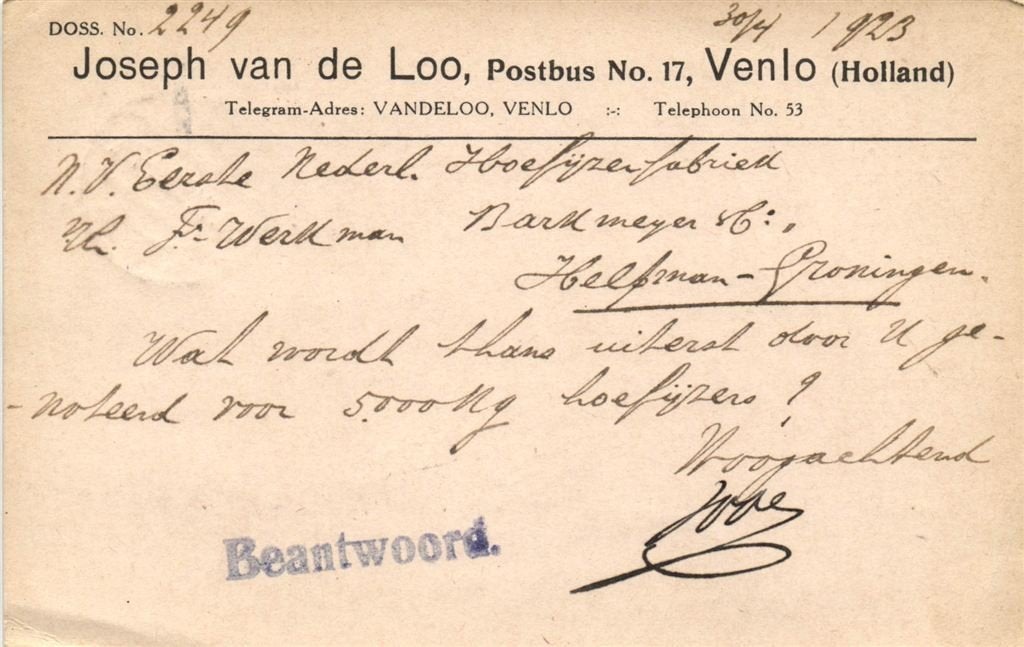 DOSS. No. 2249 30/4 1923
Joseph van de Loo, Postbus No. 17, Venlo (Holland)
Telegram-Adres: VANDELOO, VENLO :-: Telephoon No. 53
N.V. Eerste Nederl. Hoefijzerfabriek
Fa. Werkman Barkmeyer & Co.,
Helpman-Groningen.
Wat wordt thans uiterst door U ge-
noteerd voor 5.000 Kg hoefijzers?
Hoogachtend
Beantwoord.